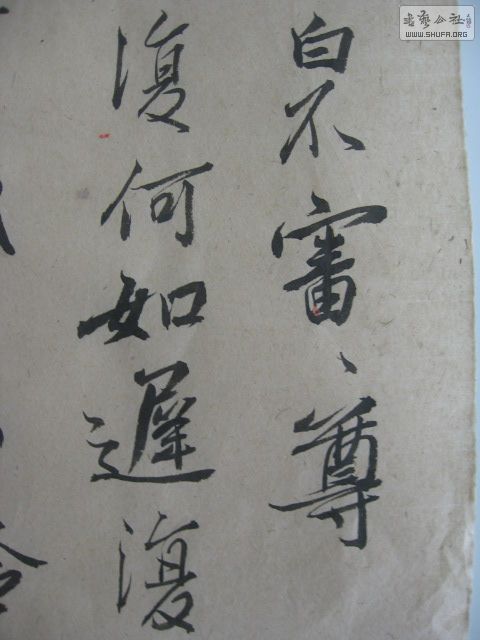 白不審、尊
復何如遲復
書藝公社
WWW.SHUFA.ORG